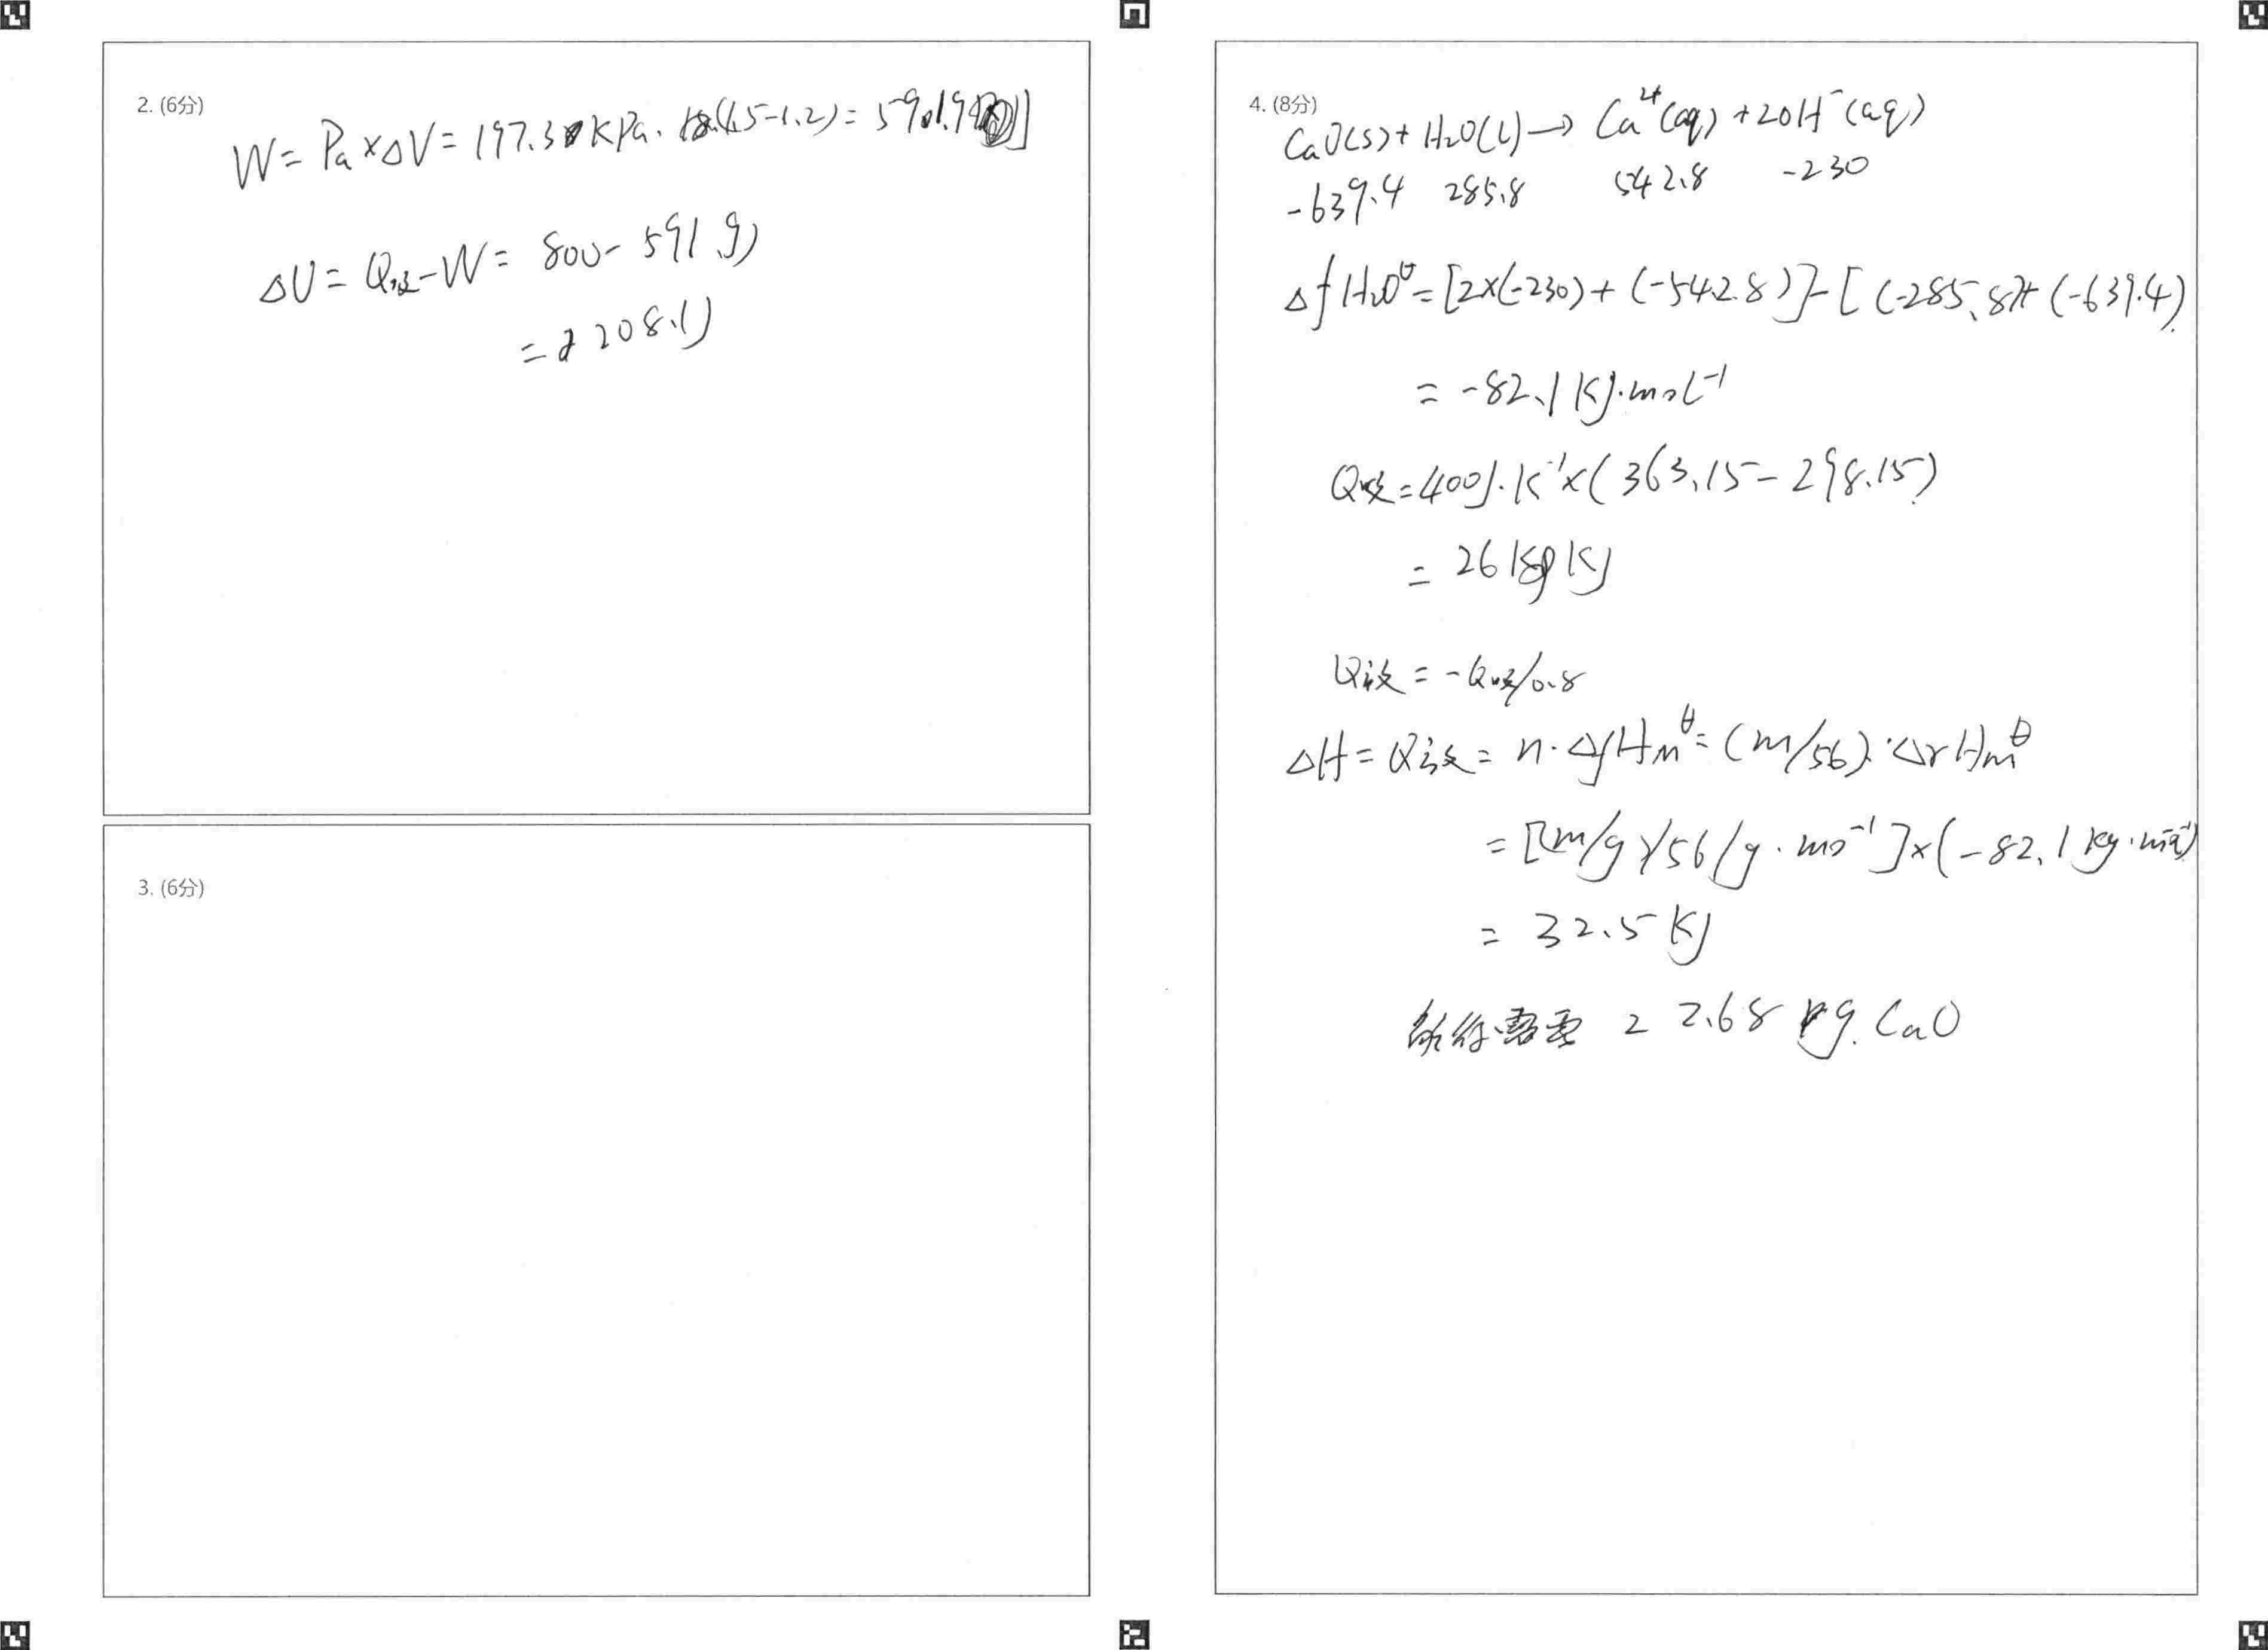 2. (6分)
W = Pa×ΔV = 197.3 KPa· (4.5-1.2) = 591.9 J
ΔU = Q吸-W = 800-591.9J
= 208.1J
3. (6分)
4. (8分)
CaO(s) + H₂O(l) → Ca²⁺(aq) + 2OH⁻(aq)
-639.4 285.8 542.8 -230
ΔfH₂O^θ = [2×(-230) + (-542.8)] - [(-285.8)+(-639.4)
= -82.1 KJ·mol⁻¹
Q吸 = 400J·K⁻¹×(363.15-298.15)
= 26 KJ
Q放 = -Q吸/0.8
ΔH = Q放 = n·ΔfHm^θ = (m/56)·ΔrHm^θ
= [(m/g)/56/g·mo⁻¹]×(-82.1 kg·mol⁻¹)
= 32.5 KJ
需要 2 2.68 g. CaO